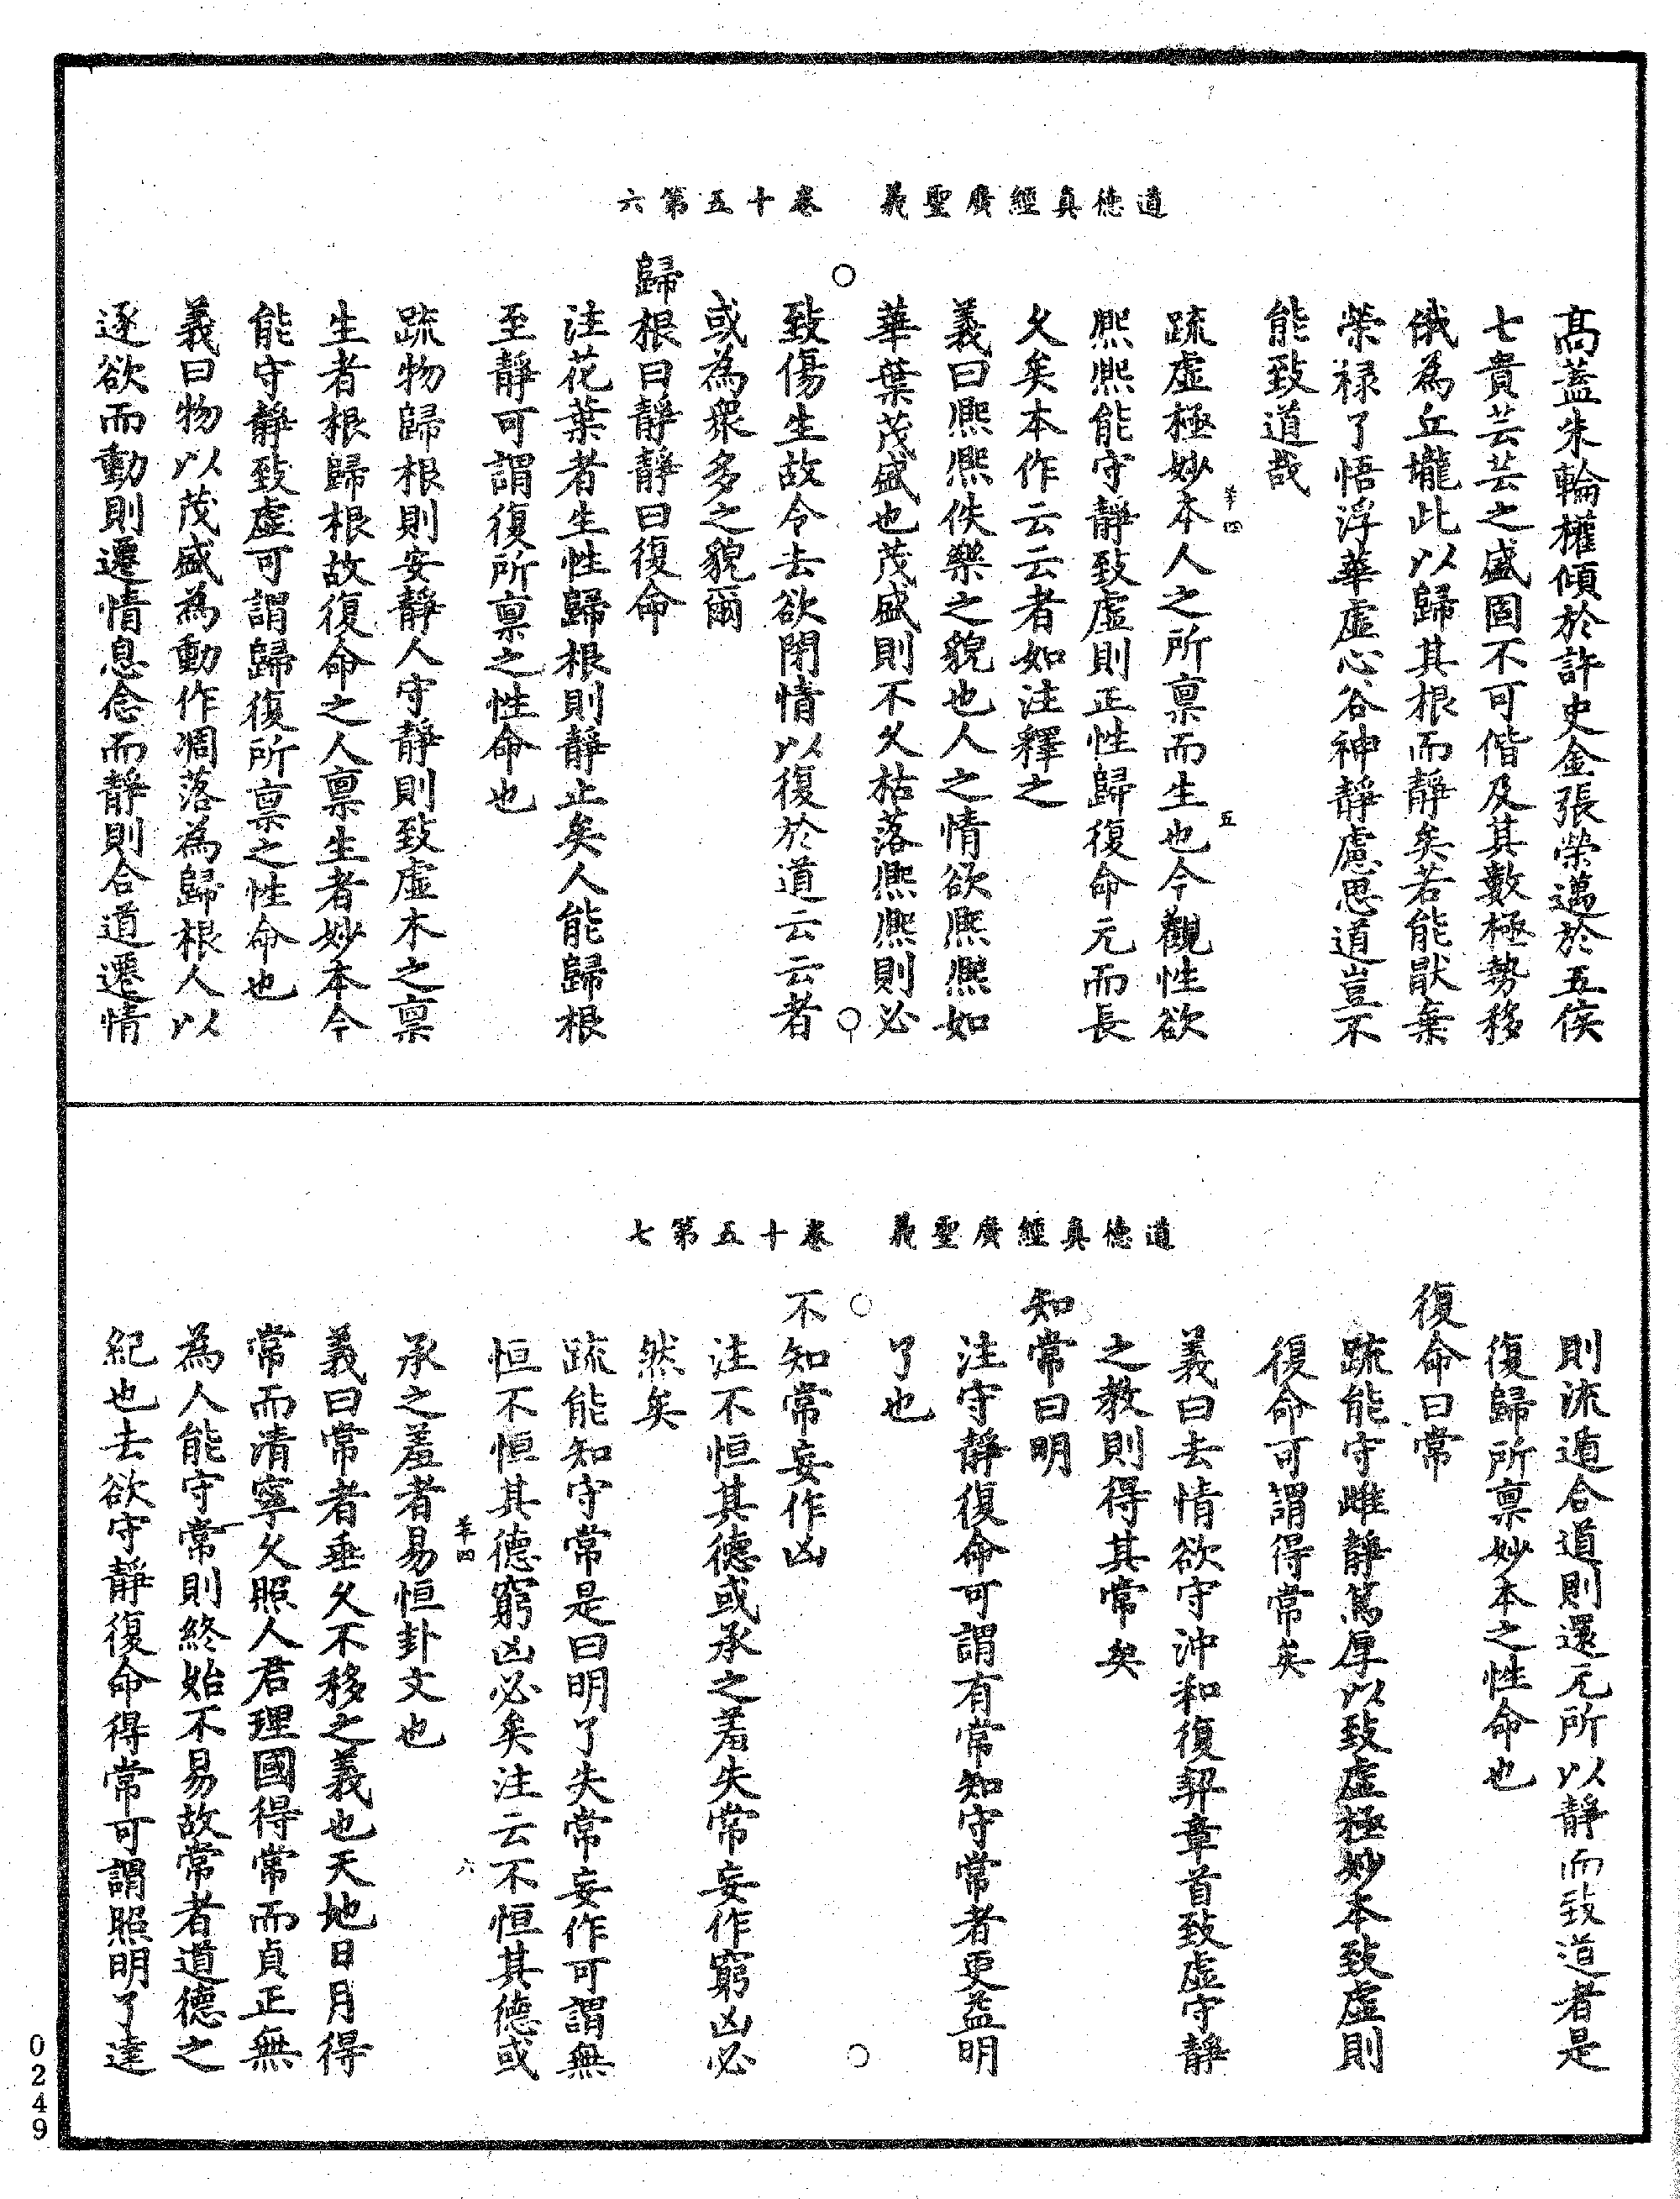 道德真經廣聖義　卷十五第六
高蓋朱輪權傾於許史金張榮邁於五侯
七貴芸芸之盛固不可偕及其數極勢移
俄為丘壠此以歸其根而靜矣若能猒棄
榮祿了悟浮華虛心谷神靜慮思道豈不
能致道哉
羊四　五
疏虛極妙本人之所禀而生也今觀性欲
熙熙能守靜致虛則正性歸復命元而長
久矣本作云云者如注釋之
義曰熙熙佚樂之貌也人之情欲熙熙如
華葉茂盛也茂盛則不久枯落熙熙則必
致傷生故令去欲閉情以復於道云云者
或為衆多之貌爾
歸根曰靜靜曰復命
注花葉者生性歸根則靜止矣人能歸根
至靜可謂復所禀之性命也
疏物歸根則安靜人守靜則致虛木之禀
生者根歸根故復命之人禀生者妙本今
能守靜致虛可謂歸復所禀之性命也
義曰物以茂盛為動作凋落為歸根人以
逐欲而動則遷情息念而靜則合道遷情
道德真經廣聖義　卷十五第七
則流遁合道則還元所以靜而致道者是
復歸所禀妙本之性命也
復命曰常
疏能守雌靜篤厚以致虛極妙本致虛則
復命可謂得常矣
義曰去情欲守沖和復契章首致虛守靜
之教則得其常矣
知常曰明
注守靜復命可謂有常知守常者更益明
了也
不知常妄作凶
注不恒其德或承之羞失常妄作窮凶必
然矣
疏能知守常是曰明了失常妄作可謂無
恒不恒其德窮凶必矣注云不恒其德或
羊四　六
承之羞者易恒卦文也
義曰常者垂久不移之義也天地日月得
常而清寧久照人君理國得常而貞正無
為人能守常則終始不易故常者道德之
紀也去欲守靜復命得常可謂照明了達
0249